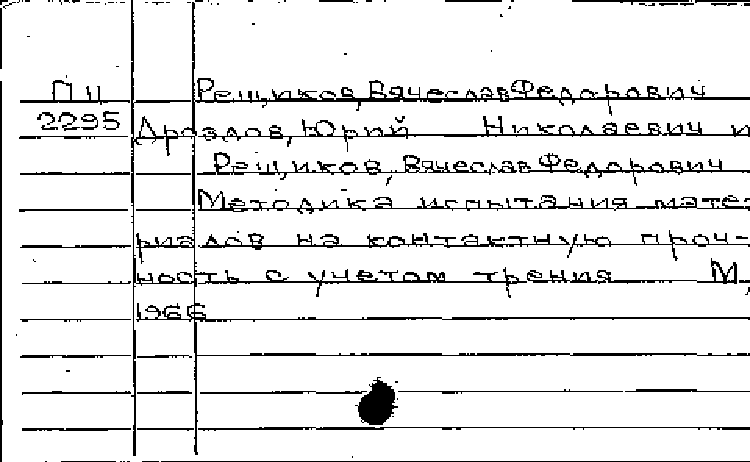 П 11 Рещиков, Вячеслав Федорович
2295
Дроздов, Юрий Николаевич и
Рещиков, Вячеслав Федорович
Методика испытания мате-
риалов на контактную проч-
ность с учетом трения М,
1966